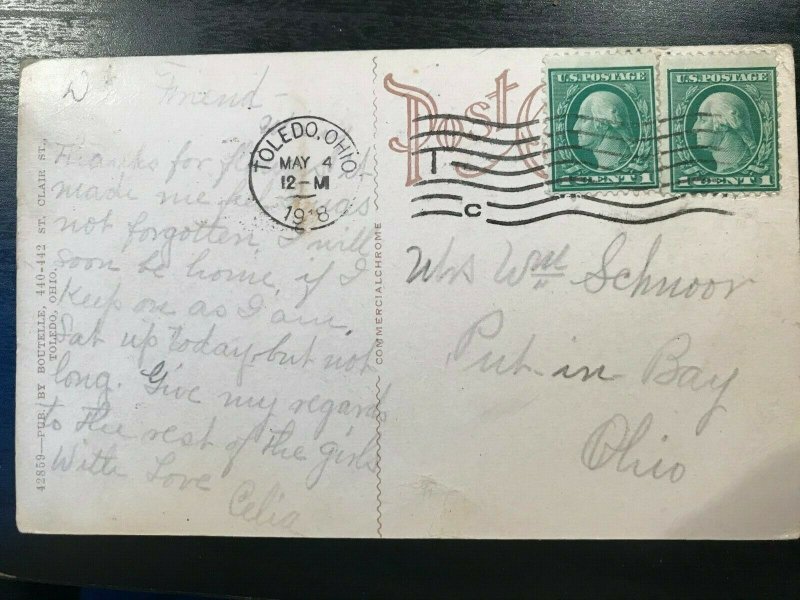 Friend -
Thanks for
made me
not forgotten. I will
soon be home if I
keep on as I am.
Sat up today but not
long. Give my regards
to the rest of the girls
With Love
Celia
42859—PUB. BY BOUTELLE, 440-442 ST. CLAIR ST.,
TOLEDO, OHIO.
COMMERCIALCHROME
Post
TOLEDO, OHIO
MAY 4
12-M
1918
T
C
U.S. POSTAGE
1 CENT 1
U.S. POSTAGE
1 CENT 1
Mrs Wm Schnoor
Put in Bay
Ohio